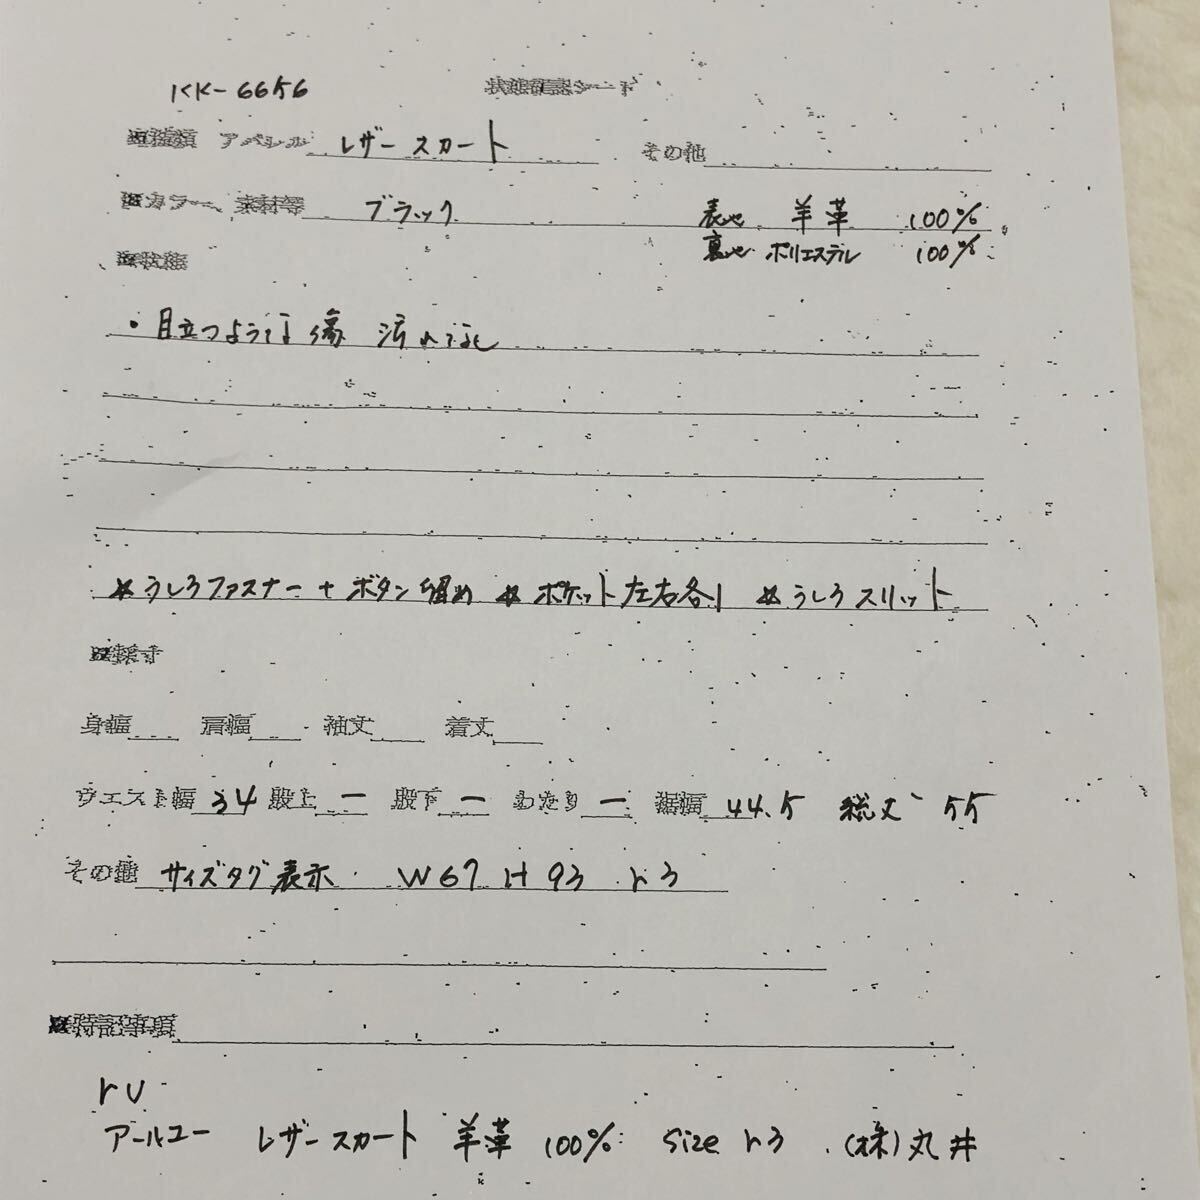 KK-6656 状態確認シート
■種類 アパレル レザースカート その他
■カラー、素材等 ブラック 表地 羊革 100%
裏地 ポリエステル 100%
■状態
・目立つような傷 汚れなし
*うしろファスナー+ボタン留め *ポケット左右各1 *うしろスリット
■採寸
身幅 肩幅 袖丈 着丈
ウエスト幅 34 股上 ー 股下 ー わたり ー 裾幅 44.5 総丈 55
その他 サイズタグ表示 W67 H93 r3
■特記事項
ru
アールユー レザースカート 羊革 100% size r3 (株)丸井